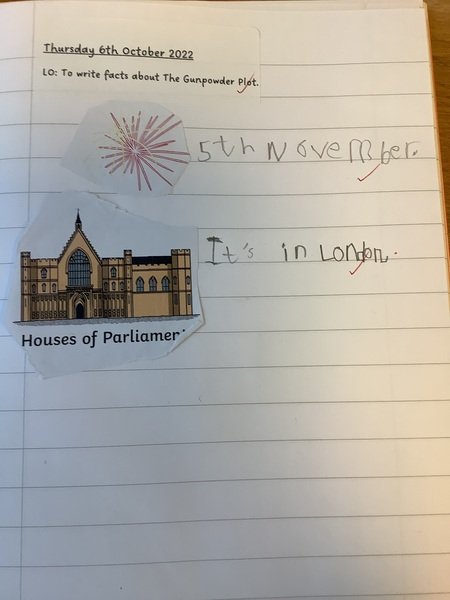 Thursday 6th October 2022
LO: To write facts about The Gunpowder Plot.
5th November.
It's in London.
Houses of Parliamen